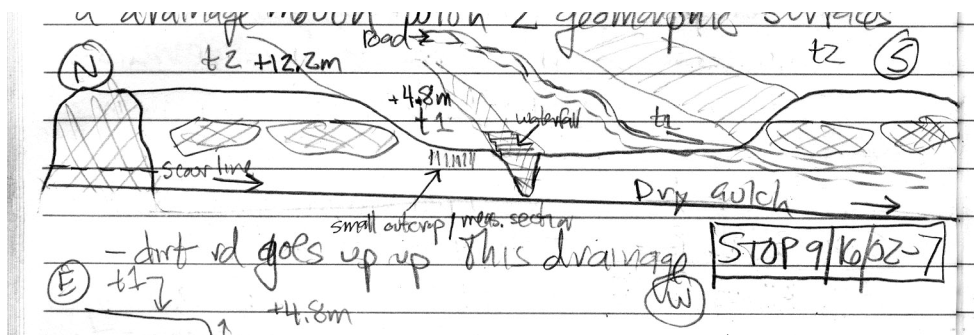 a drainage mouth with 2 geomorphic surfaces
road
N
t2 +12.2m
t2
S
+4.8m
t1
waterfall
t1
scour line
Dry Gulch
small outcrop / meas. section
- dirt rd goes up up This drainage
STOP 9/16/02-7
E
t1
W
+4.8m